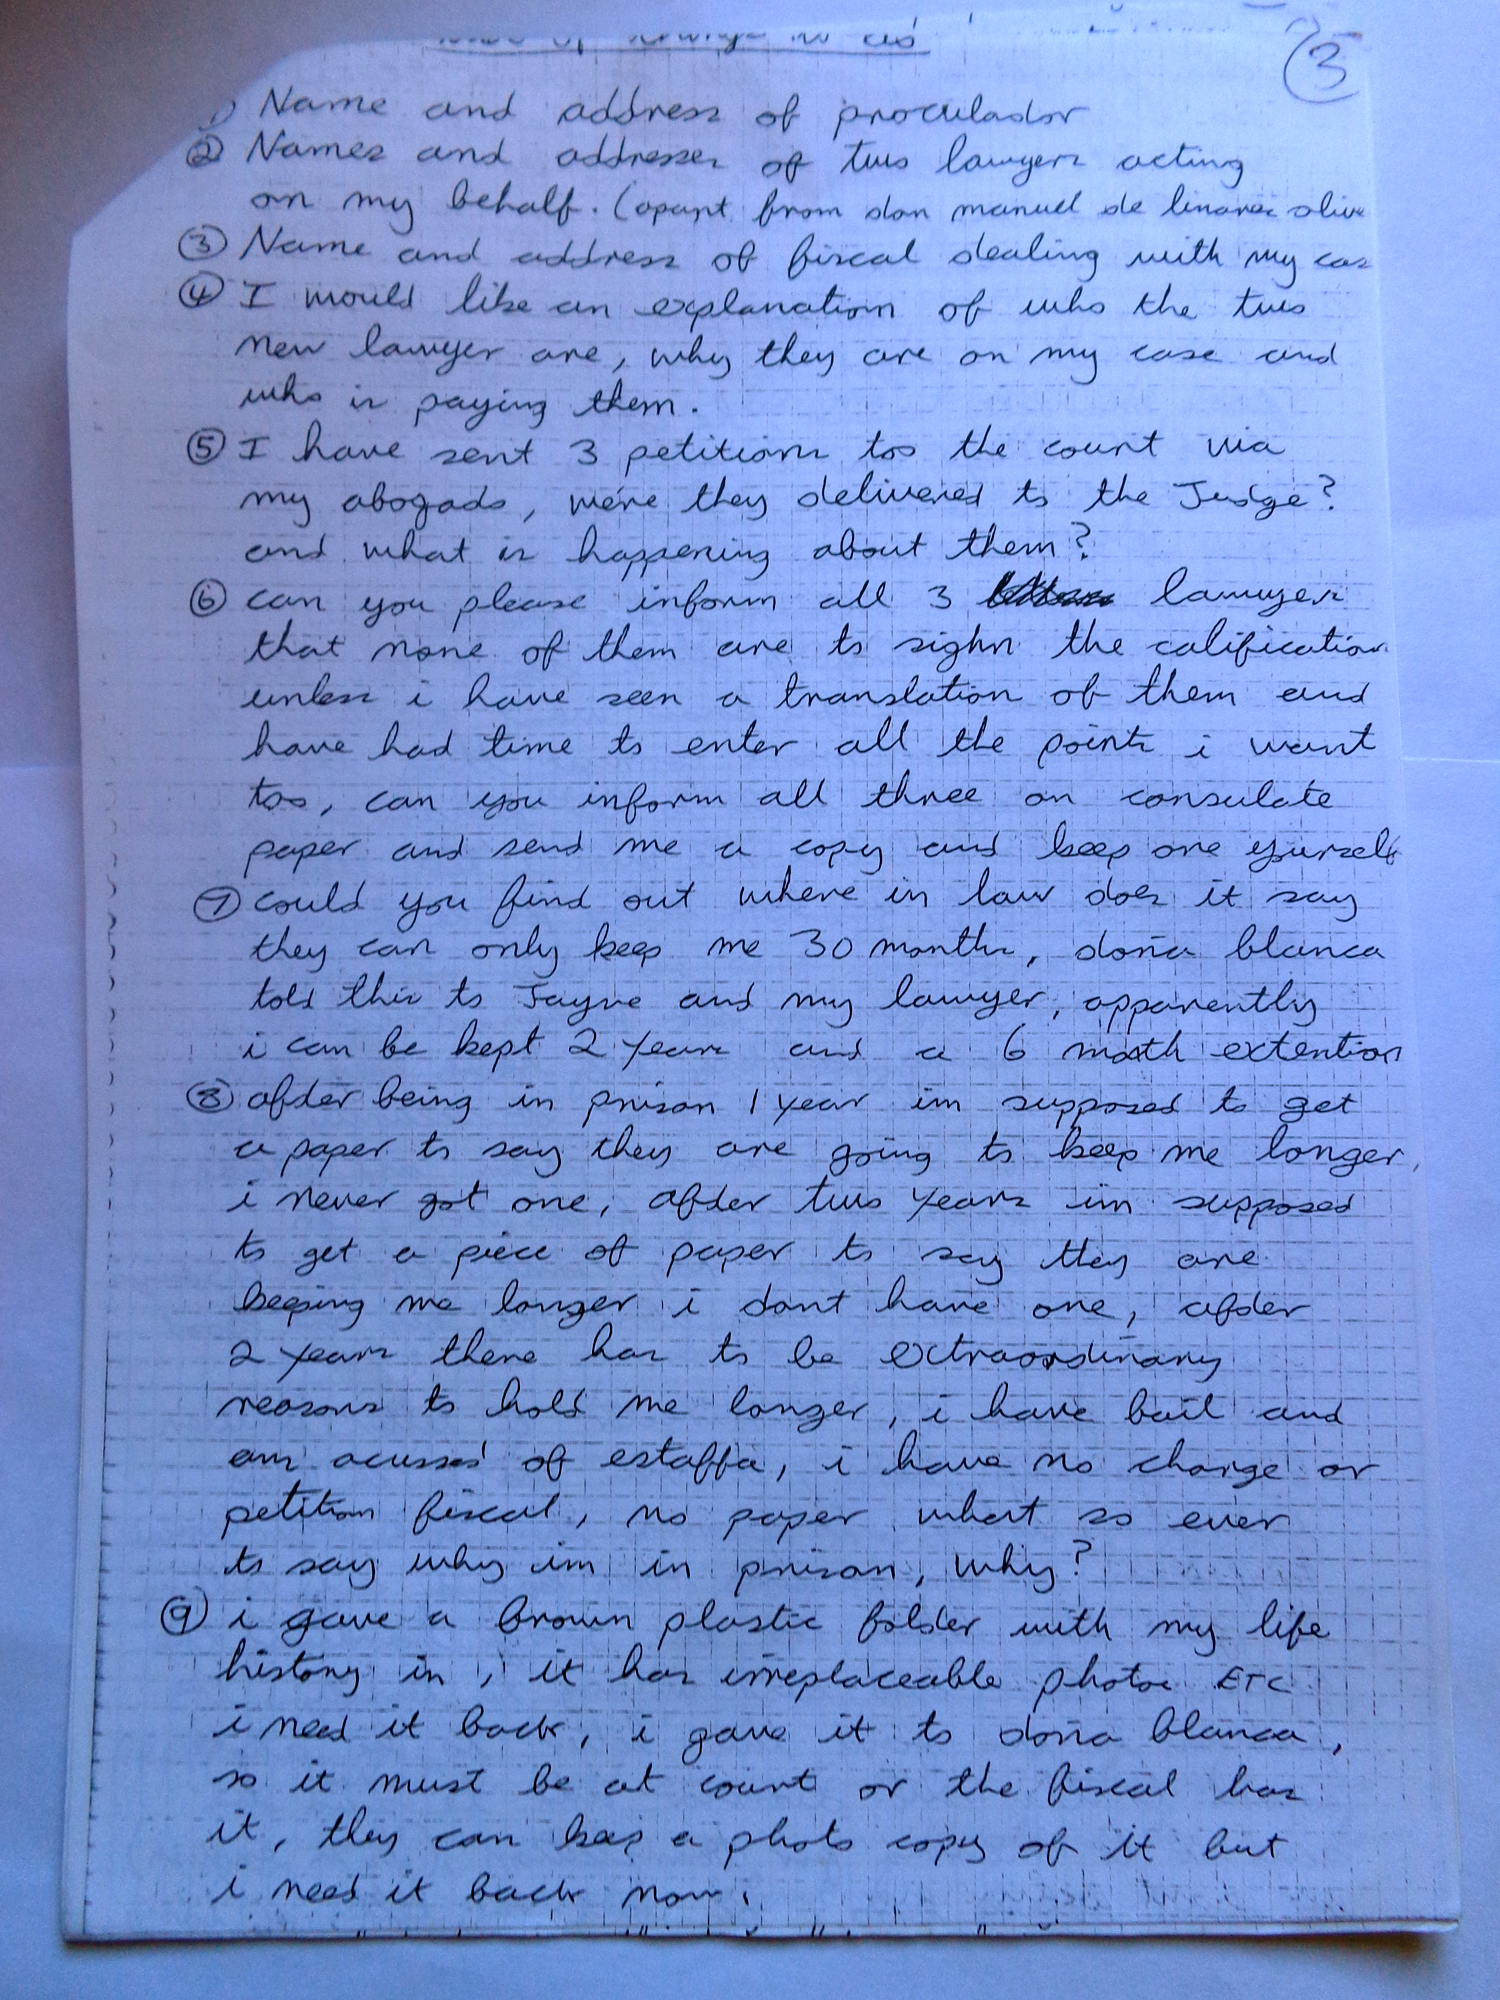 of things to
3
1) Name and address of proculador
2 Names and addresses of two lawyers acting
on my behalf. (apart from don manuel de linares
3 Name and address of fiscal dealing with my cas
4 I would like an explanation of who the two
new lawyer are, why they are on my case and
who is paying them.
5 I have sent 3 petitions too the court via
my abogado, were they delivered to the Judge?
and what is happening about them?
6 can you please inform all 3 lawyers
that none of them are to sighn the calification
unless i have seen a translation of them and
have had time to enter all the points i want
too, can you inform all three on consulate
paper and send me a copy and keep one yourself
7 could you find out where in law does it say
they can only keep me 30 months, doña blanca
told this to Jayne and my lawyer, apparently
i can be kept 2 years and a 6 month extention
8 after being in prison 1 year im supposed to get
a paper to say they are going to keep me longer,
i never got one, after two years im supposed
to get a piece of paper to say they are
keeping me longer i dont have one, after
2 years there has to be extraordinary
reasons to hold me longer, i have bail and
am acussed of estaffa, i have no charge or
petition fiscal, no paper what so ever
to say why im in prison, why?
9 i gave a brown plastic folder with my life
history in, it has irreplaceable photos ETC
i need it back, i gave it to doña blanca,
so it must be at court or the fiscal has
it, they can keep a photo copy of it but
i need it back now.